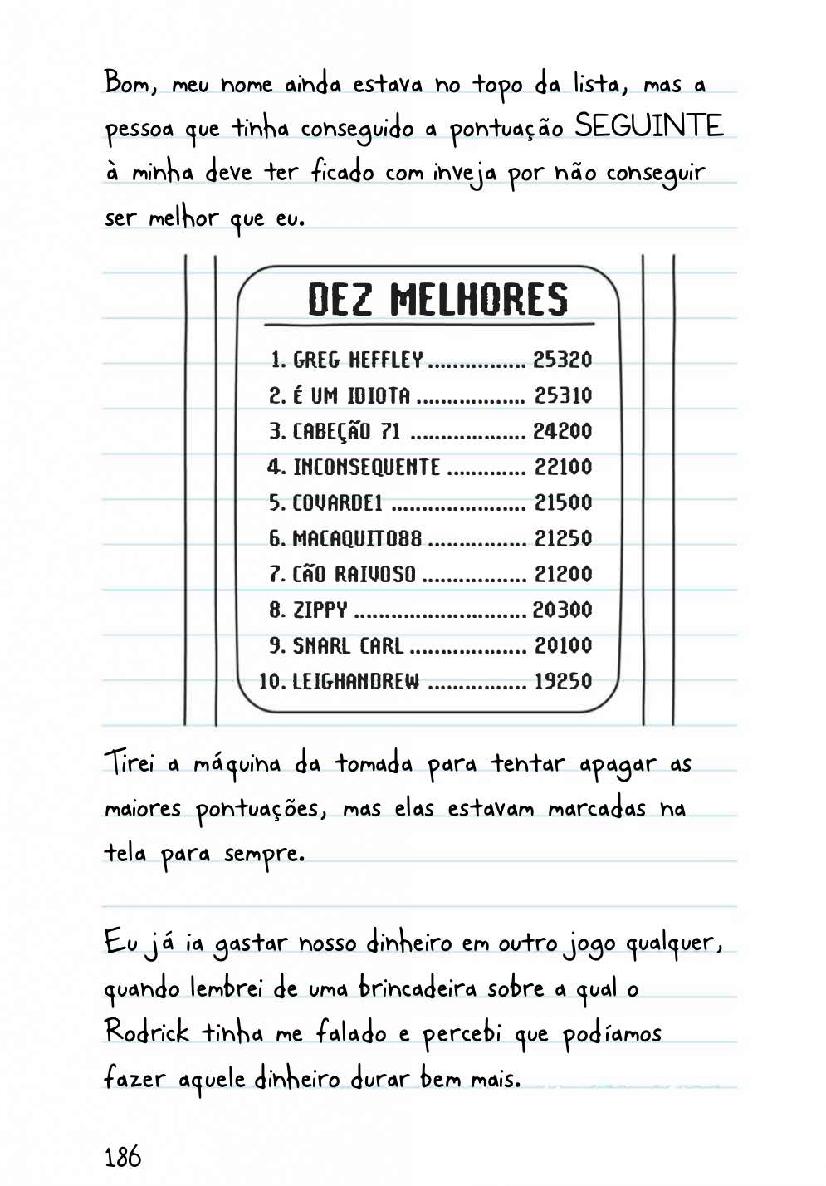 Bom, meu nome ainda estava no topo da lista, mas a
pessoa que tinha conseguido a pontuação SEGUINTE
à minha deve ter ficado com inveja por não conseguir
ser melhor que eu.
DEZ MELHORES
1. GREG HEFFLEY................ 25320
2. É UM IDIOTA .................. 25310
3. CABEÇÃO 71 ................... 24200
4. INCONSEQUENTE ............. 22100
5. COVARDE1 ...................... 21500
6. MACAQUITO88 ................ 21250
7. CÃO RAIVOSO ................. 21200
8. ZIPPY ............................ 20300
9. SNARL CARL ................... 20100
10. LEIGHANDREW ................ 19250
Tirei a máquina da tomada para tentar apagar as
maiores pontuações, mas elas estavam marcadas na
tela para sempre.
Eu já ia gastar nosso dinheiro em outro jogo qualquer,
quando lembrei de uma brincadeira sobre a qual o
Rodrick tinha me falado e percebi que podíamos
fazer aquele dinheiro durar bem mais.
186